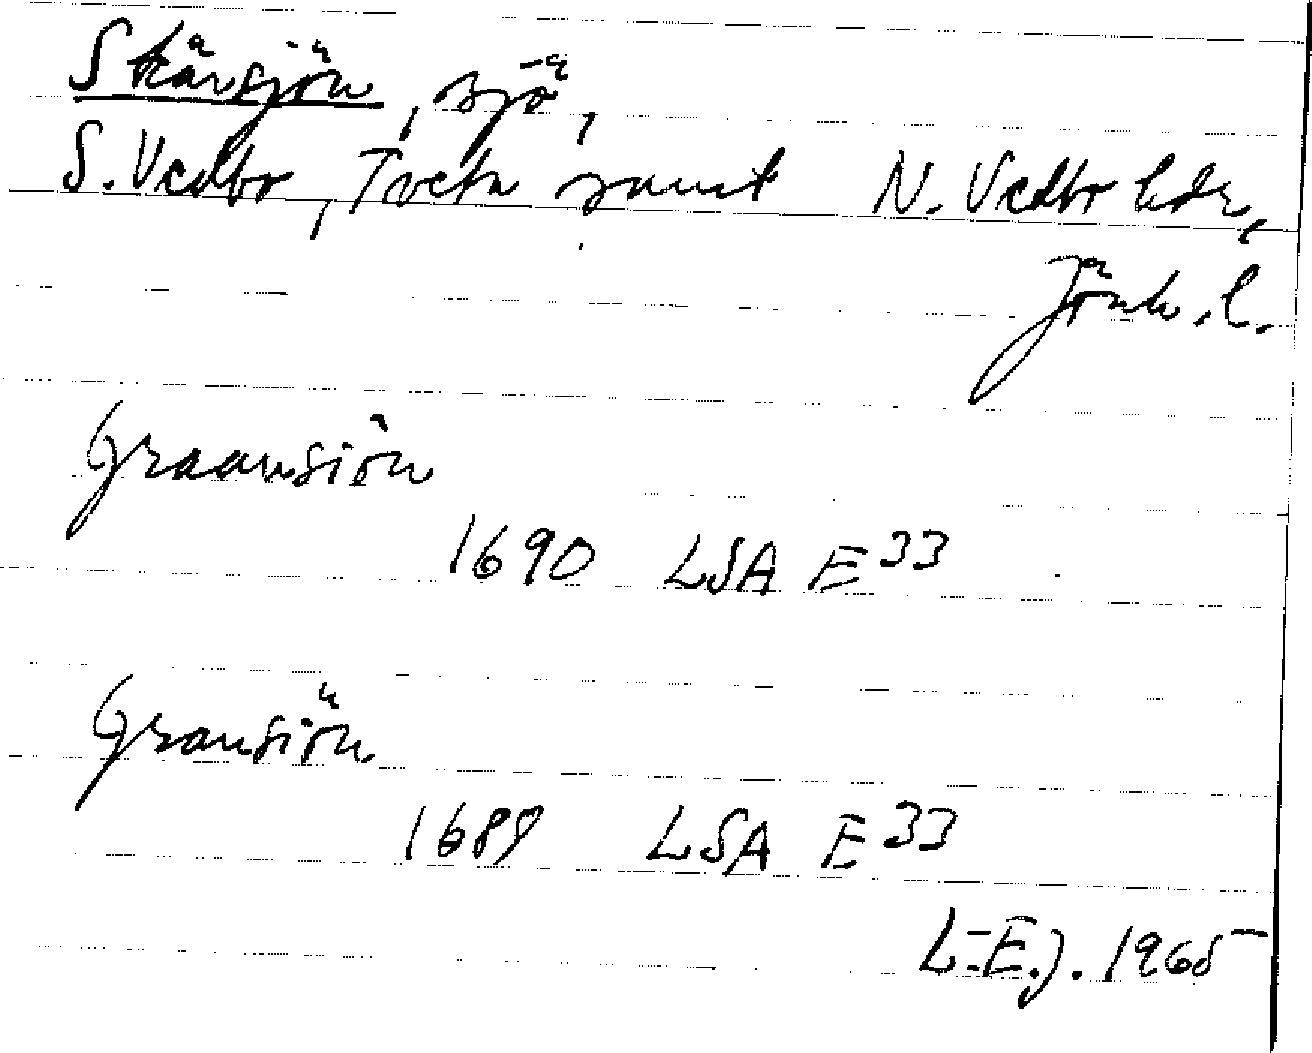 Skärsjön, sjö,
S. Vedbo, Tveta samt N. Vedbo hdr,
Jönk. l.
Graansiön
1690 LSA E33
Gransiön
1689 LSA E33
L.E.J. 1965